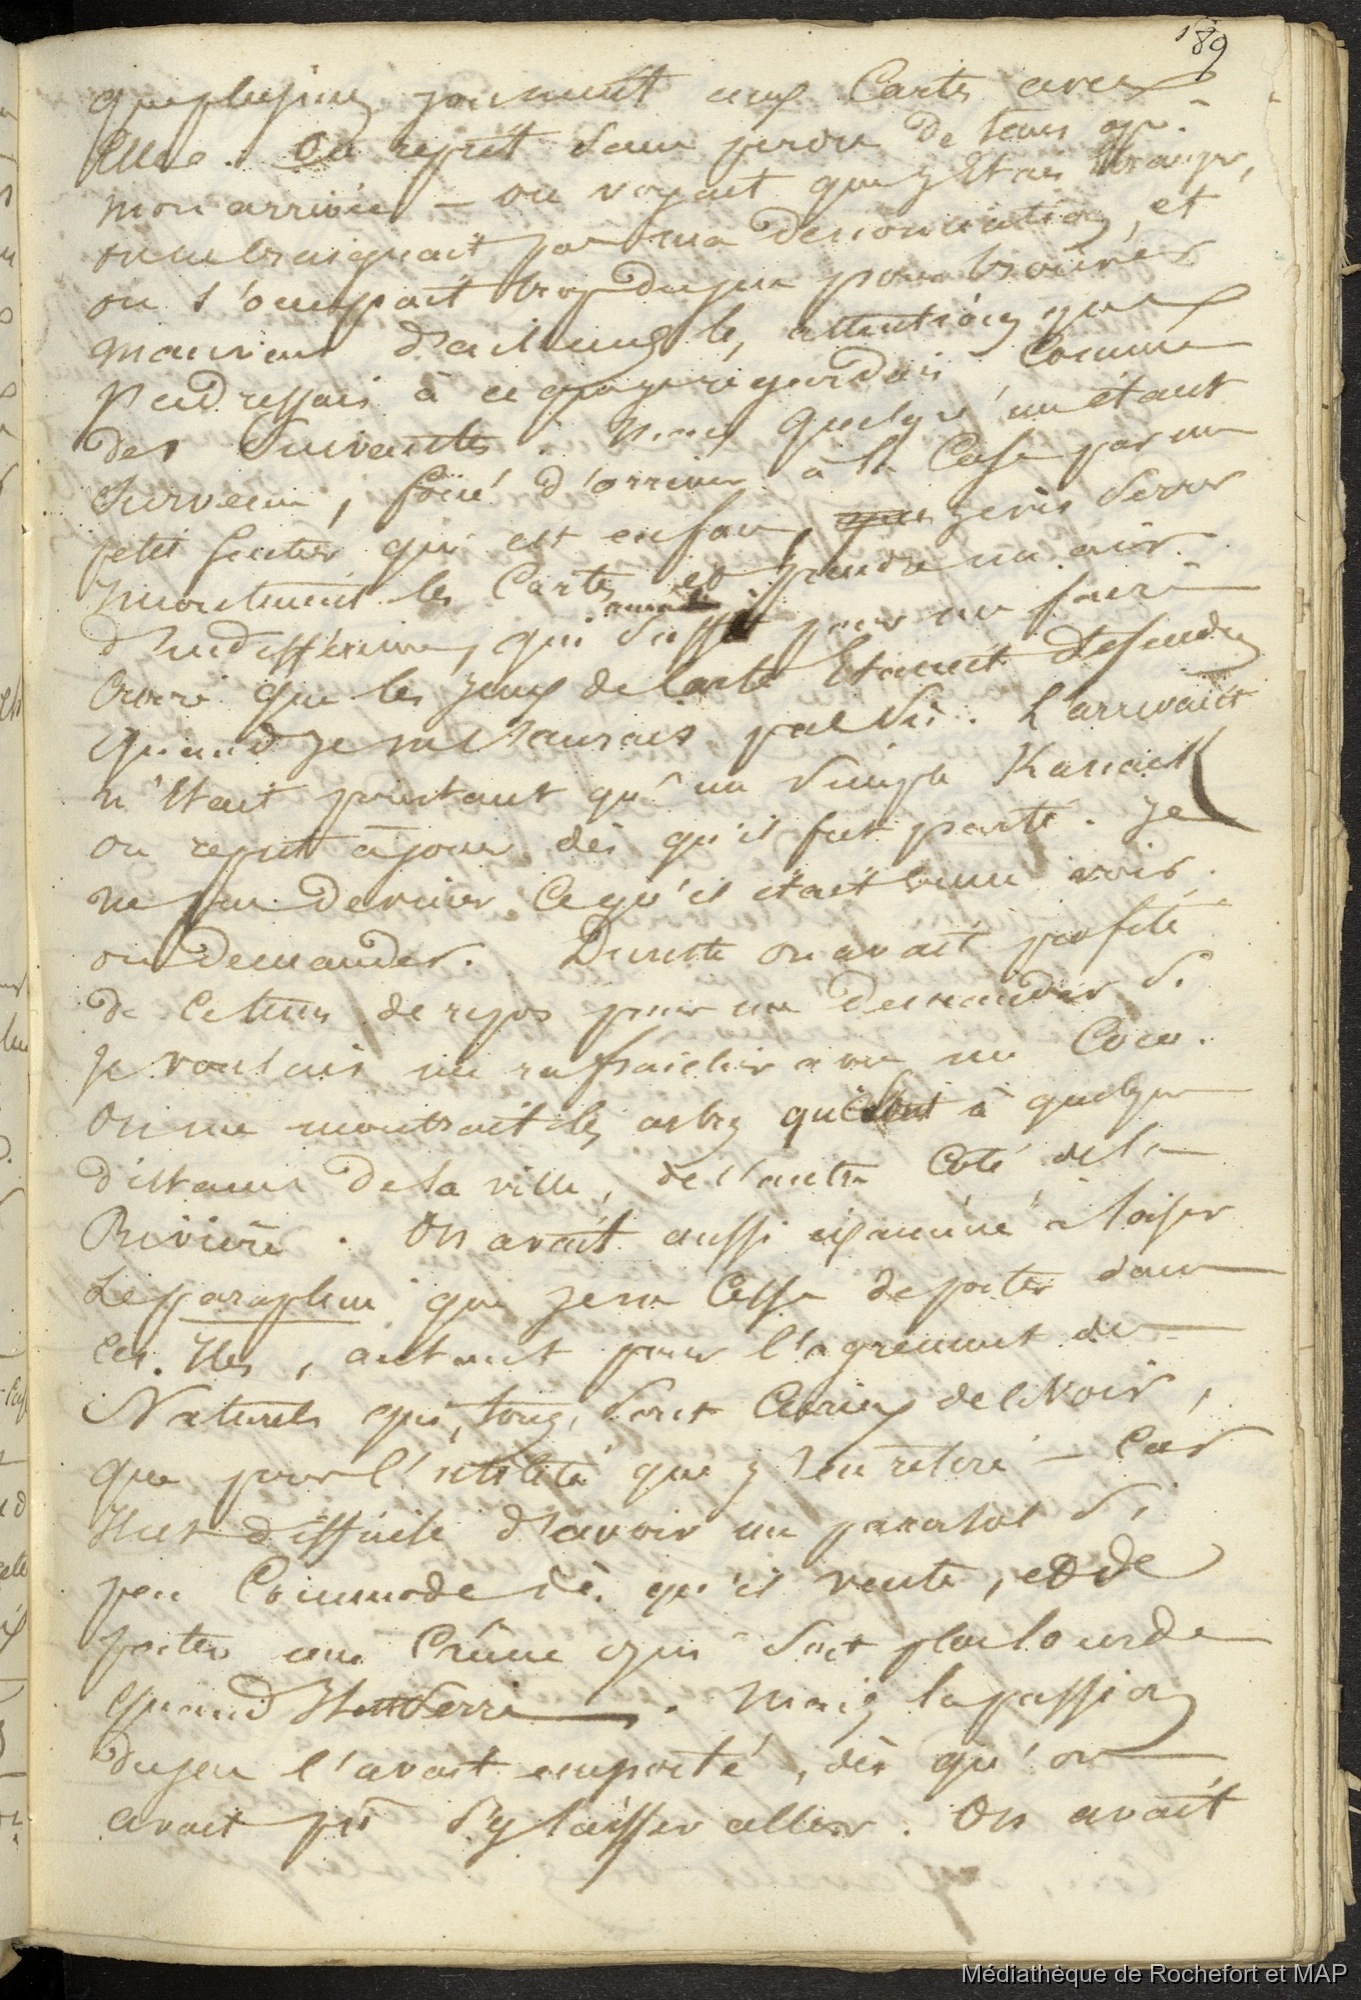 189
que plusieurs jouaient aux Cartes avec
Elle. On reprit sans perdre de tems après
mon arrivée — on voyait que j'Etais Etranger,
on ne craignait pas ma denonciation, et
on s'occupait trop du jeu pour trouver
mauvaises d'ailleurs les attentions que
j'adressais à ce que je regardais Comme
des Suivantes. Mais quelqu'un étant
survenu, forcé d'arriver à la Case par un
petit sentier qui est en face, je vis serrer
les Cartes et prendre un air
d'Indifférence, qui aurait suffit pour me faire
Croire que les jeux de Carte Etaient defendus
quand je ne l'aurais pas su. L'arrivant
n'Etait pourtant qu'un simple Kanack
on reprit à jouer dès qu'il fut parti. Je
ne pus deviner Ce qu'il était venu voir
ou demander. Du reste on avait profité
de Ce tems de repos pour me demander si
je voulais me rafraichir avec un Coco.
On me montrait les arbres qui sont à quelque
distance de la ville, de l'autre Côté de la
Rivière. On avait aussi examiné à loisir
Le parapluie que je ne Cesse de porter dans
Ces Iles, autant pour l'agrément des
Naturels qui, tous, sont Curieux de le Voir,
que pour l'utilité que j'en retire — Car
Il est difficile d'avoir un parasol si
peu Commode dès qu'il vente, et de
porter une Canne qui soit plus lourde
quand Il est serré. Mais la passion
du jeu l'avait emporté, dès qu'on
avait pu s'y laisser aller. On avait
Médiathèque de Rochefort et MAP